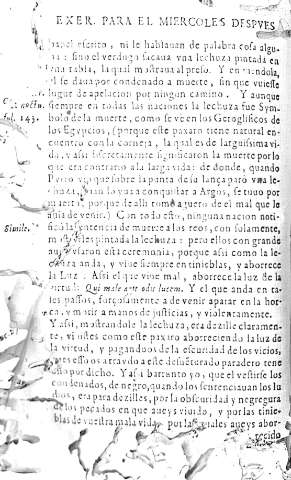 EXER. PARA EL MIERCOLES DESPVES
papel escrito, ni le hablauan de palabra cosa algu-
na: sino el verdugo sacaua vna lechuza pintada en
vna tabla, la qual mostraua al preso. Y en viendola,
el se daua por condenado a muerte, sin que vuiesse
lugar de apelacion por ningun camino. Y aunque
siempre en todas las naciones la lechuza fue Sym-
bolo de la muerte, como se vee en los Geroglificos de
los Egypcios, (porque este paxaro tiene natural en-
cuentro con la corneja, la qual es de larguissima vi-
da, y assi secretamente significaron la muerte por lo
que era contrario a la larga vida: de donde, quando
que sobre la punta de su lança paró vna le-
chuza, yendo conquistar a Argos, se tuuo por
muerto, porque de alli tomó aguero de el mal que le
auia de venir.) Con todo esso, ninguna nacion noti-
ficó la sentencia de muerte a los reos, con solamente,
pintada la lechuza: pero ellos con grande
vsaron esta ceremonia, porque assi como la le-
chuza anda, y viue siempre en tinieblas, y aborrece
la Luz: Assi el que viue mal, aborrece la luz de la
virtud: Qui male agit odit lucem. Y el que anda en ta-
les passos, forçosamente a de venir aparar en la hor-
ca, y morir a manos de justicias, y violentamente.
Y assi, mostrandole la lechuza, era dezille claramen-
te, vistes como este paxaro aborreciendo la luz de
la virtud, y pagandoos de la escuridad de los vicios,
pues essos os a traydo a este desuenturado paradero
por dicho. Y assi barrunto yo, que el vestirse los
condenados, de negro, quando los sentenciauan los Iu
dios, era para dezilles, por la obscuridad y negregura
de los pecados en que aueys viuido, y por las tinie-
blas de vuestra mala vida, por las quales aueys abor-
recido
Simile.